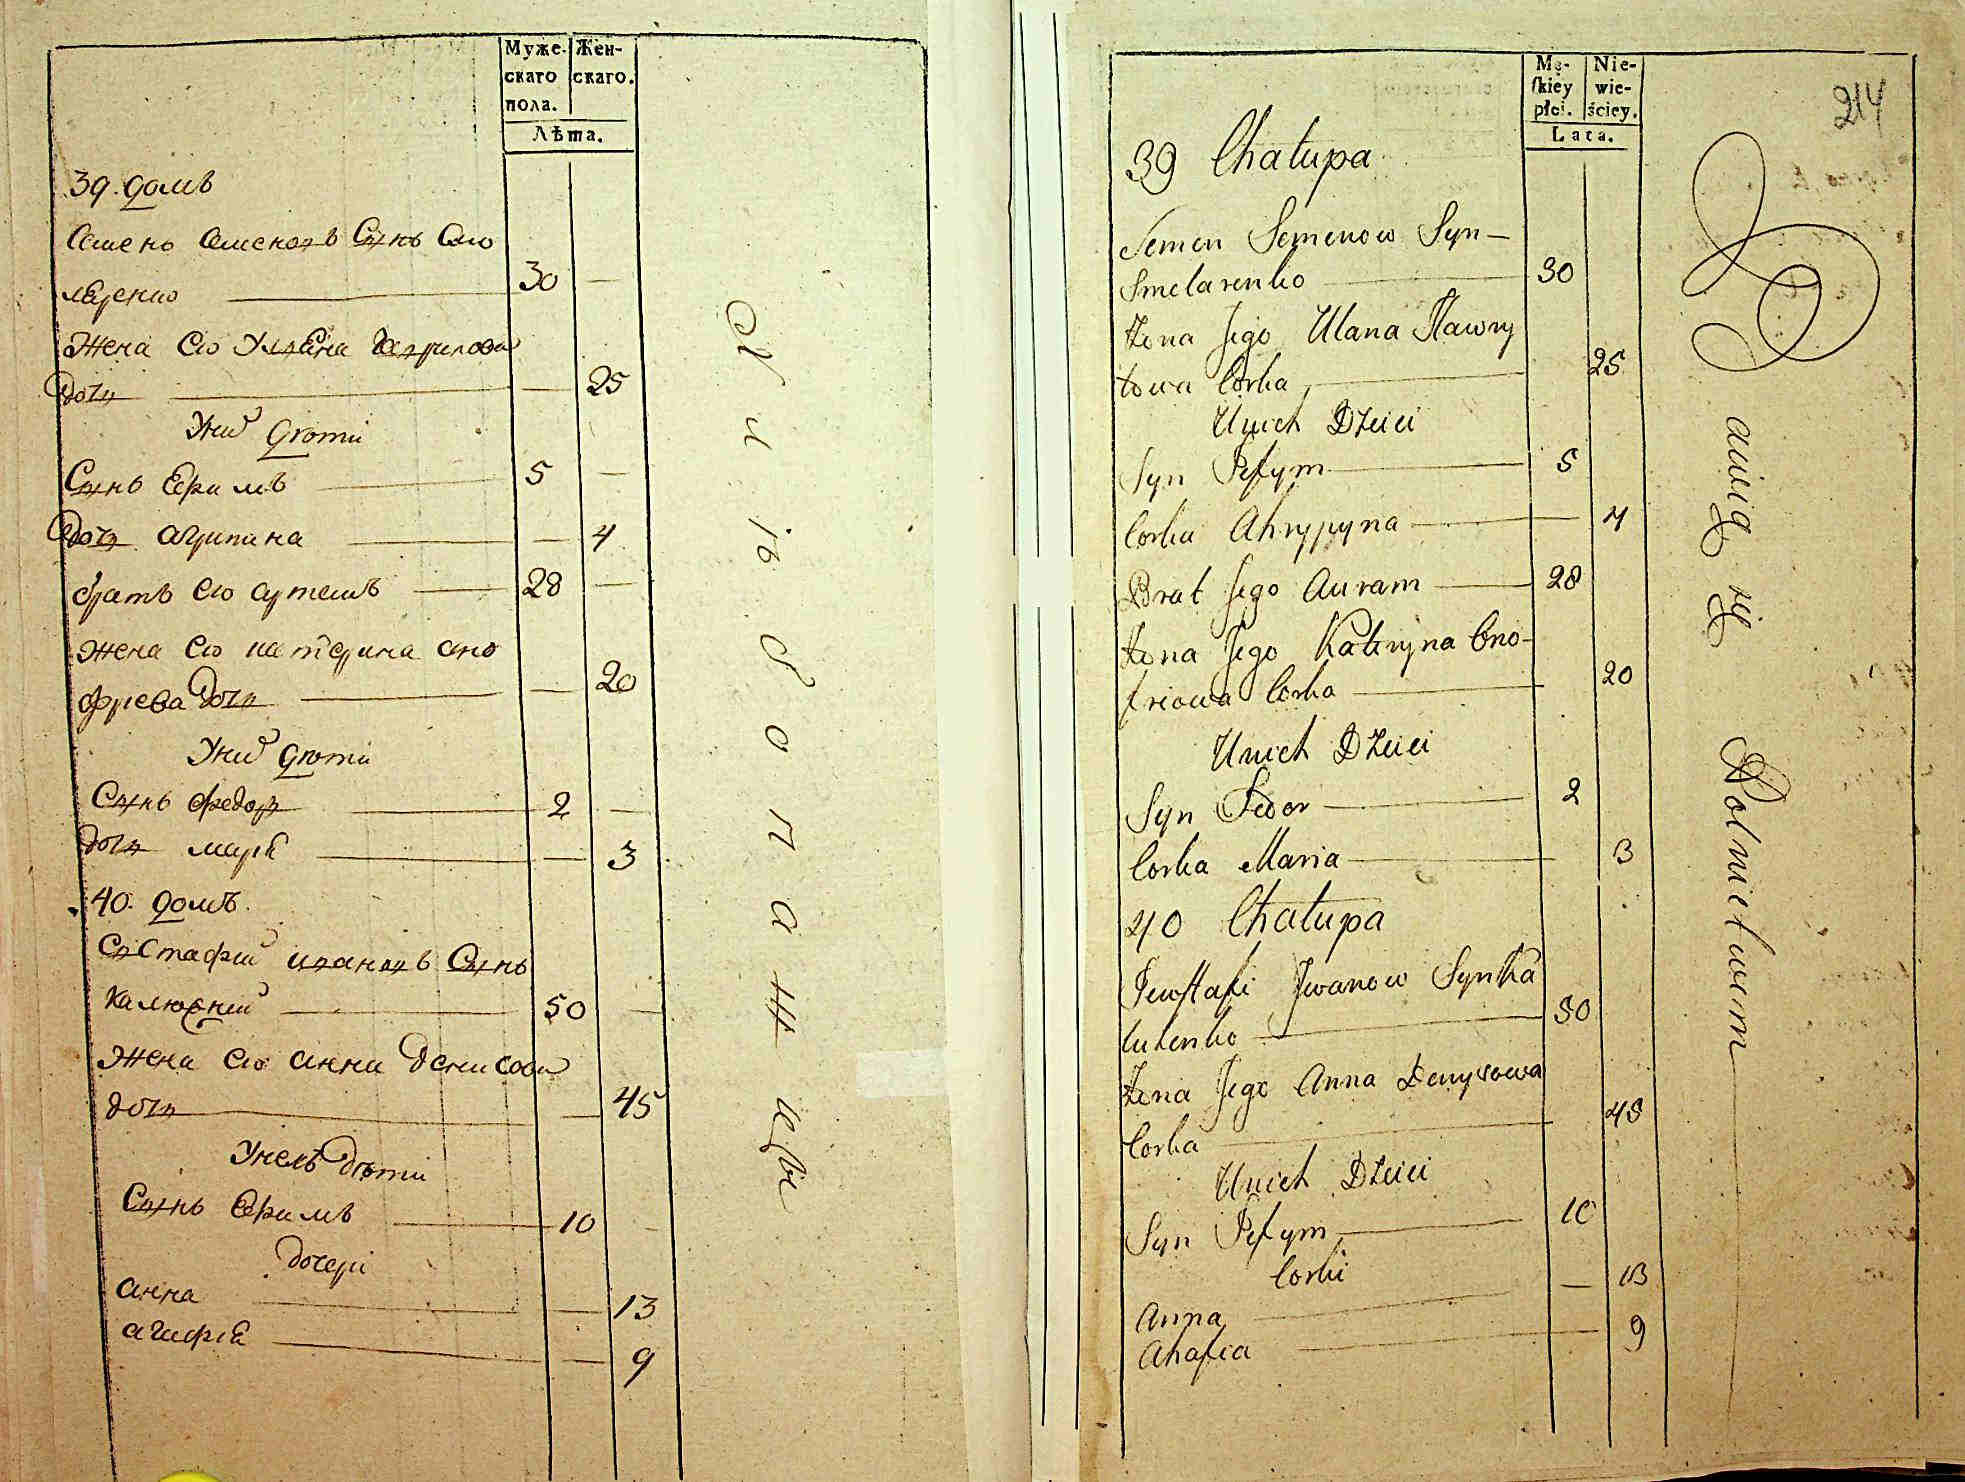 Муже-
скаго
пола.
Жен-
скаго.
Лѣта.
39. домъ
Семенъ Семеновъ Сынъ Сме
ляренко 30 —
Жена его Уляна Гаврилова
дочь — 25
У них дѣти
Сынъ Ефимъ 5 —
дочь агрипина — 4
братъ его артемъ 28 —
жена его катерина ано
фрева дочь — 20
У них дѣти
Сынъ федоръ 2 —
дочь марія — 3
40. домъ.
Евстафий ивановъ Сынъ
калюжний 50 —
жена его анна денисова
дочь — 45
У нихъ дѣти
Сынъ Ефимъ 10 —
дочери
анна — 13
агафія — 9
Mę-
skiey
płci.
Nie-
wie-
ściey.
Lata.
214
39 Chałupa
Semen Semenow Syn —
Smelarenko 30
Żona Jego Ulana Hawry
łowa Corka 25
U nich Dzieci
Syn Jefym 5
Corka Ahrypyna 4
Brat Jego Auram 28
Żona Jego Kateryna Ono-
friowa Corka 20
U nich Dzieci
Syn Fedor 2
Corka Maria 3
40 Chałupa
Jewstafi Jwanow Syn Ka
luzenko 50
Żona Jego Anna Denysowa
Corka 45
U nich Dzieci
Syn Jefym 10
Corki
Anna — 13
Ahafia 9